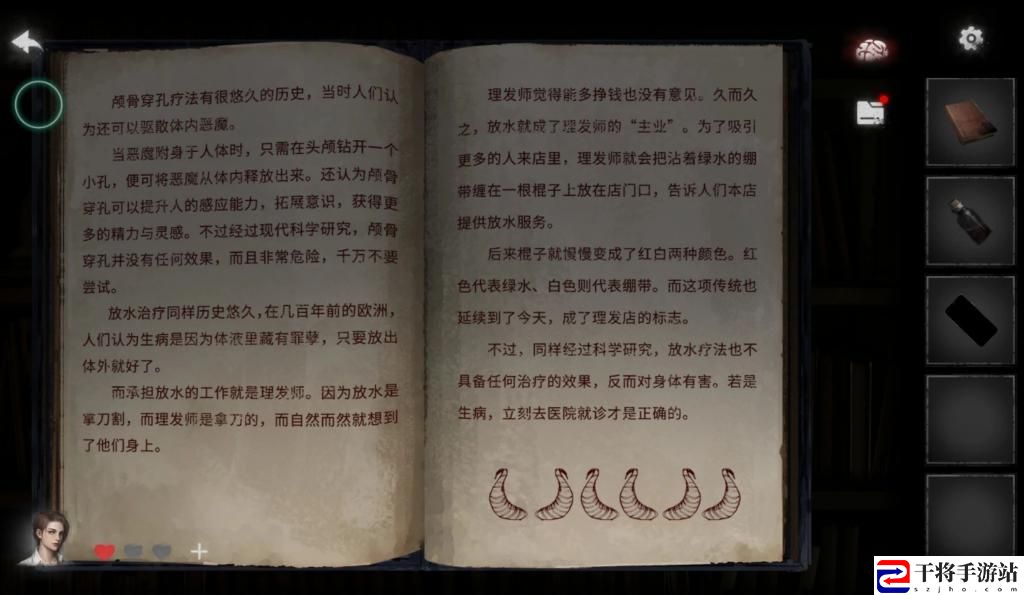 颅骨穿孔疗法有很悠久的历史，当时人们认
为还可以驱散体内恶魔。
当恶魔附身于人体时，只需在头颅钻开一个
小孔，便可将恶魔从体内释放出来。还认为颅骨
穿孔可以提升人的感应能力，拓展意识，获得更
多的精力与灵感。不过经过现代科学研究，颅骨
穿孔并没有任何效果，而且非常危险，千万不要
尝试。
放水治疗同样历史悠久，在几百年前的欧洲，
人们认为生病是因为体液里藏有罪孽，只要放出
体外就好了。
而承担放水的工作就是理发师。因为放水是
拿刀割，而理发师是拿刀的，而自然而然就想到
了他们身上。
理发师觉得能多挣钱也没有意见。久而久
之，放水就成了理发师的“主业”。为了吸引
更多的人来店里，理发师就会把沾着绿水的绷
带缠在一根棍子上放在店门口，告诉人们本店
提供放水服务。
后来棍子就慢慢变成了红白两种颜色。红
色代表绿水、白色则代表绷带。而这项传统也
延续到了今天，成了理发店的标志。
不过，同样经过科学研究，放水疗法也不
具备任何治疗的效果，反而对身体有害。若是
生病，立刻去医院就诊才是正确的。
干将手游站
szjho.com